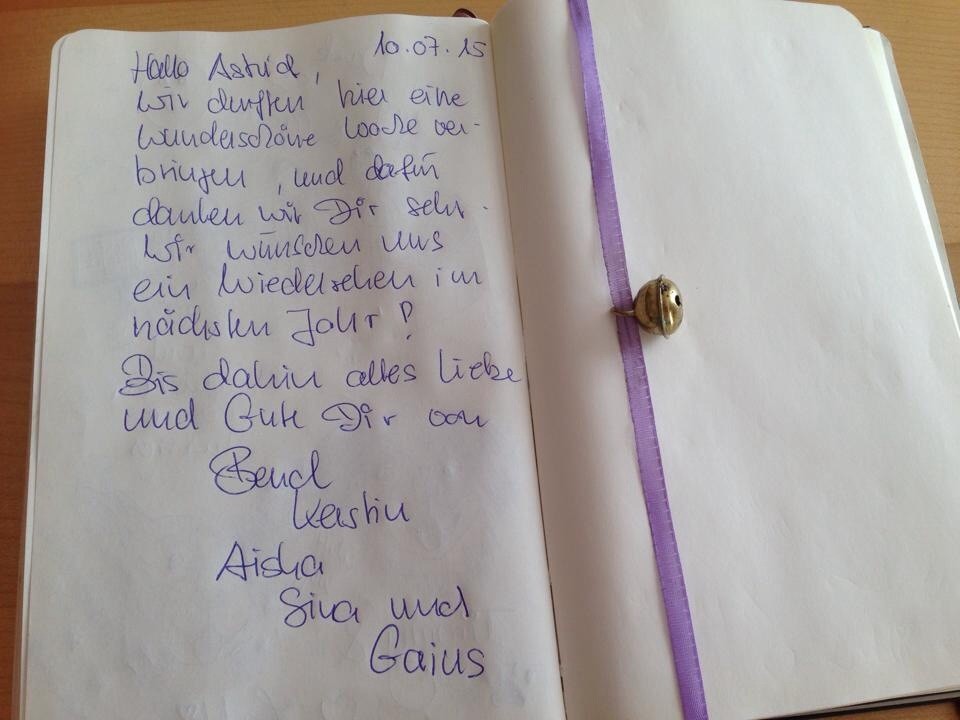 10.07.15
Hallo Astrid,
wir durften hier eine
wunderschöne Woche ver-
bringen, und dafür
danken wir Dir sehr.
Wir wünschen uns
ein Wiedersehen im
nächsten Jahr!
Bis dahin alles Liebe
und Gute Dir von
Bernd
Kerstin
Aisha
Siva und
Gaius